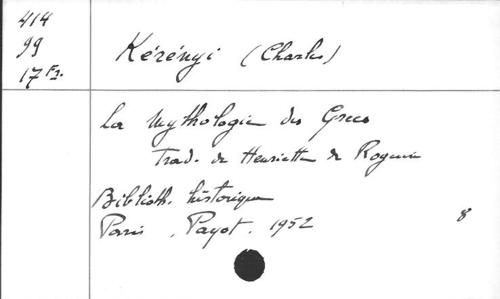 414
99
17 Fr.
Kérényi (Charles)
La Mythologie des Grecs
Trad. de Henriette de Roguin
Biblioth. historique
Paris, Payot. 1952
8